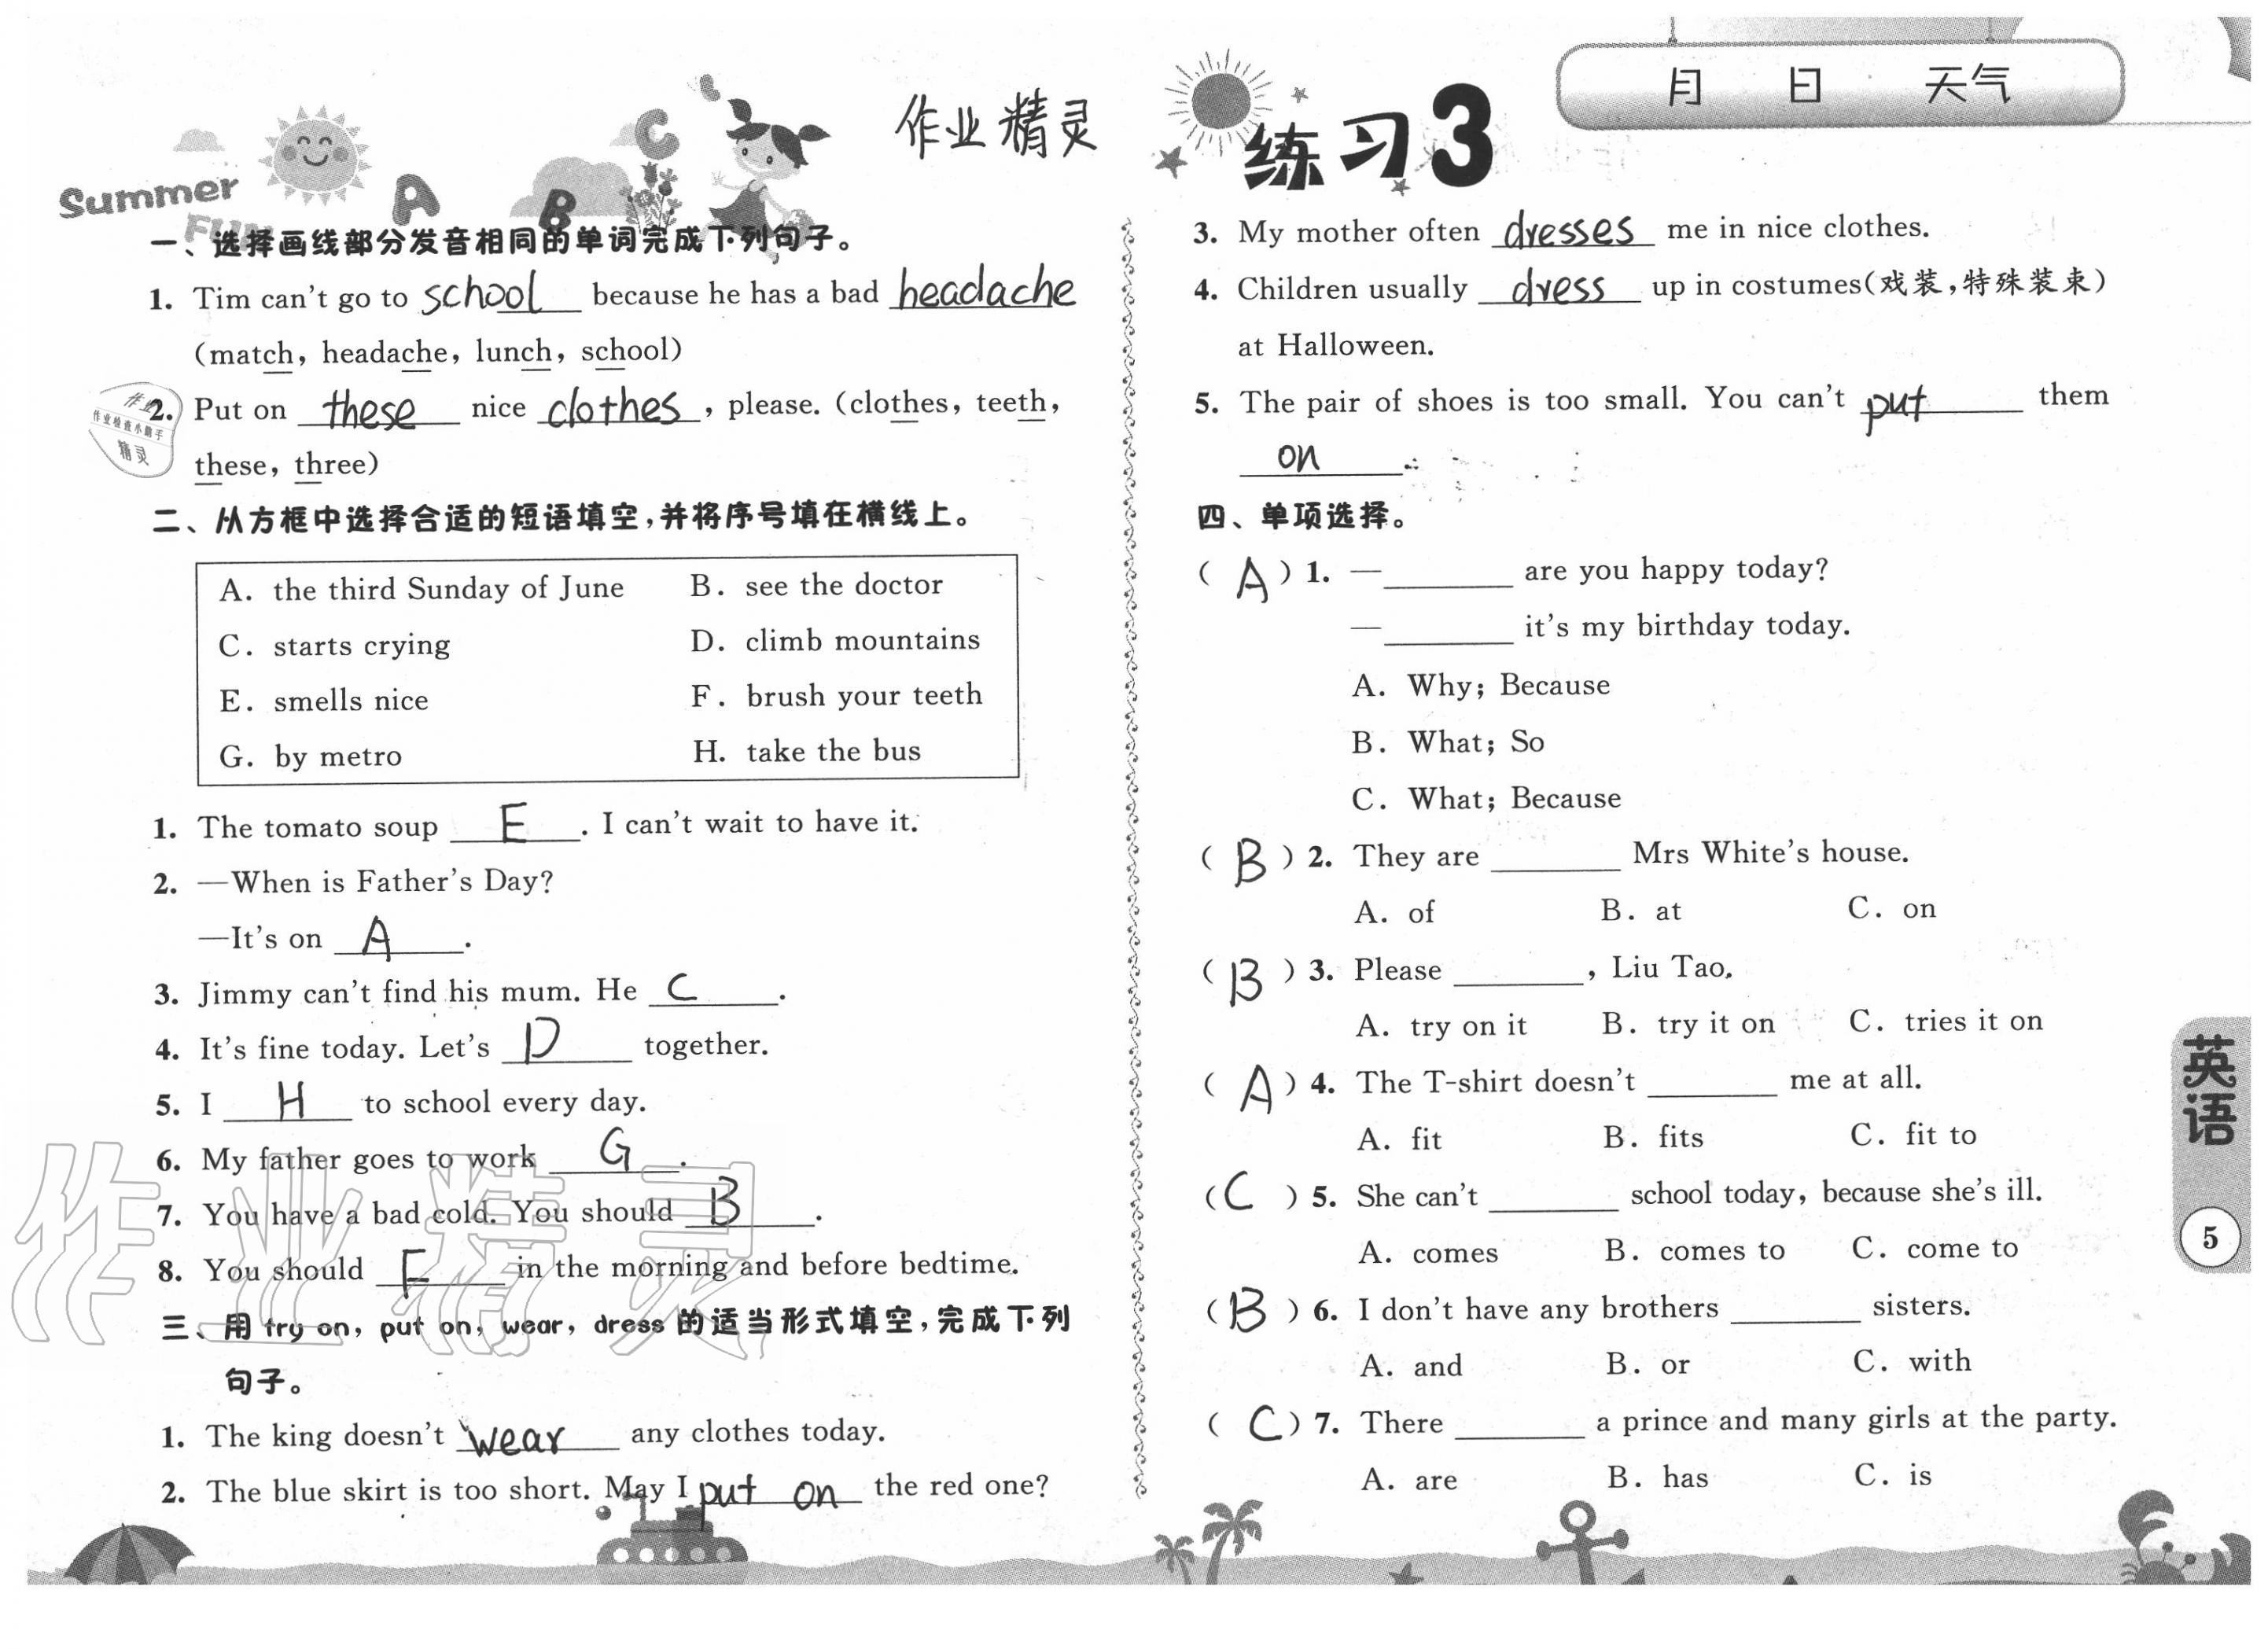 Summer
FUN
A
B
C
作业精灵
练习3
月 日 天气
一、选择画线部分发音相同的单词完成下列句子。
1. Tim can't go to school because he has a bad headache
(match, headache, lunch, school)
2. Put on these nice clothes, please. (clothes, teeth,
these, three)
作业检查小助手
精灵
二、从方框中选择合适的短语填空,并将序号填在横线上。
A. the third Sunday of June B. see the doctor
C. starts crying D. climb mountains
E. smells nice F. brush your teeth
G. by metro H. take the bus
1. The tomato soup E. I can't wait to have it.
2. —When is Father's Day?
—It's on A.
3. Jimmy can't find his mum. He C.
4. It's fine today. Let's D together.
5. I H to school every day.
6. My father goes to work G.
7. You have a bad cold. You should B.
8. You should F in the morning and before bedtime.
作业精灵
三、用 try on, put on, wear, dress 的适当形式填空,完成下列
句子。
1. The king doesn't wear any clothes today.
2. The blue skirt is too short. May I put on the red one?
3. My mother often dresses me in nice clothes.
4. Children usually dress up in costumes(戏装,特殊装束)
at Halloween.
5. The pair of shoes is too small. You can't put them
on.
四、单项选择。
( A ) 1. —________ are you happy today?
—________ it's my birthday today.
A. Why; Because
B. What; So
C. What; Because
( B ) 2. They are ________ Mrs White's house.
A. of B. at C. on
( B ) 3. Please ________, Liu Tao.
A. try on it B. try it on C. tries it on
( A ) 4. The T-shirt doesn't ________ me at all.
A. fit B. fits C. fit to
( C ) 5. She can't ________ school today, because she's ill.
A. comes B. comes to C. come to
( B ) 6. I don't have any brothers ________ sisters.
A. and B. or C. with
( C ) 7. There ________ a prince and many girls at the party.
A. are B. has C. is
英语
5